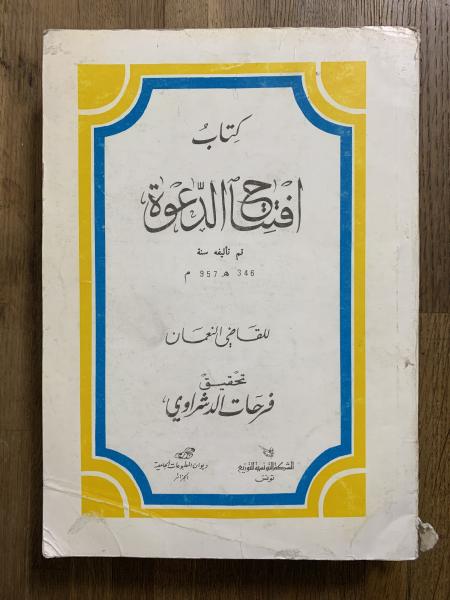 كِتابُ
افتِتاح الدّعْوة
تم تأليفه سنة
346 هـ 957 م
للقاضي النعمان
تحقيق
فرحات الدشراوي
الشركة التونسية للتوزيع
تونس
ديوان المطبوعات الجامعية
الجزائر